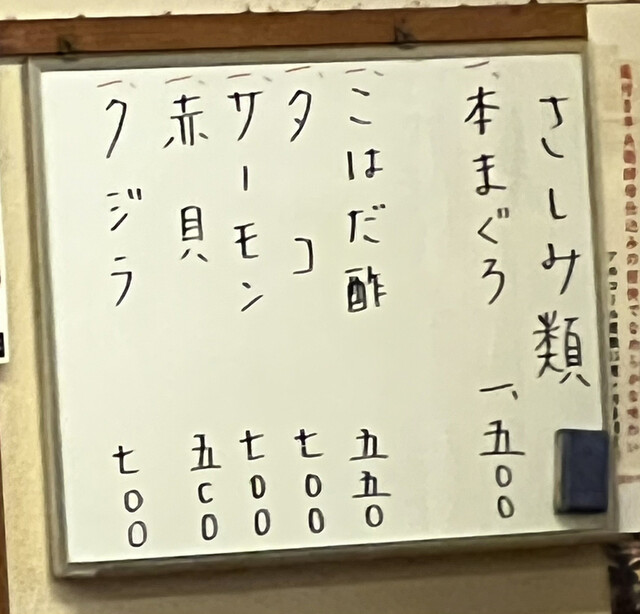 さしみ類
一、本まぐろ 一、五〇〇
一、こはだ酢 五五〇
一、タコ 七〇〇
一、サーモン 七〇〇
一、赤貝 五〇〇
一、クジラ 七〇〇